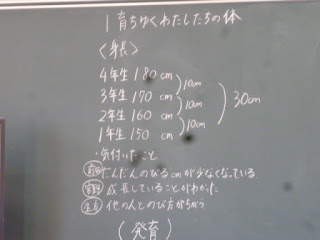 1 育ちゆくわたしたちの体
〈身長〉
4年生 180cm
3年生 170cm
2年生 160cm
1年生 150cm
10cm
10cm
10cm
30cm
・気付いたこと
だんだんのびるcmが少なくなっている
成長していることがわかった
他の人とのび方がちがう
(発育)